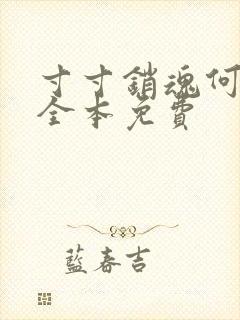 寸寸銷魂何
全本免費
藍春吉